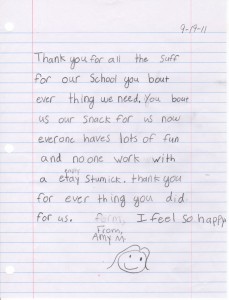 9-19-11
Thank you for all the suff
for our School you bout
ever thing we need. You bout
us our snack for us now
everone haves lots of fun
and no one work with
a etay Stumick. thank you
for ever thing you did
for us. I feel so happy
From,
Amy M